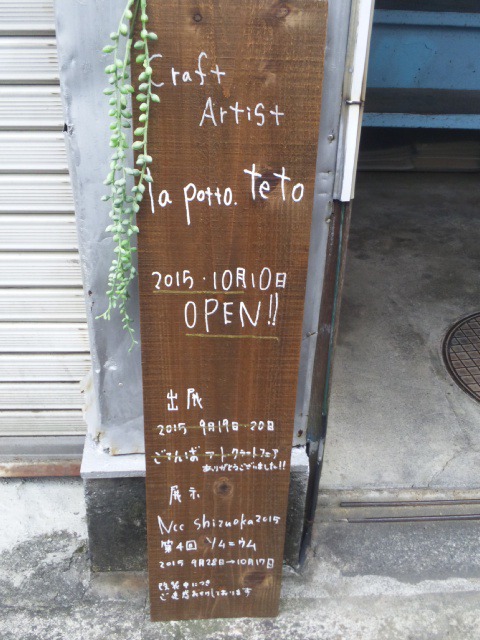 Craft
Artist
la potto. teto
2015・10月10日
OPEN!!
出展
2015 9月19日-20日
ごてんばアートクラフトフェア
ありがとうございました!!
展示
Ncc Shizuoka 2015
第4回 ソムニウム
2015 9月28日→10月17日
改装中につき
ご迷惑おかけしております